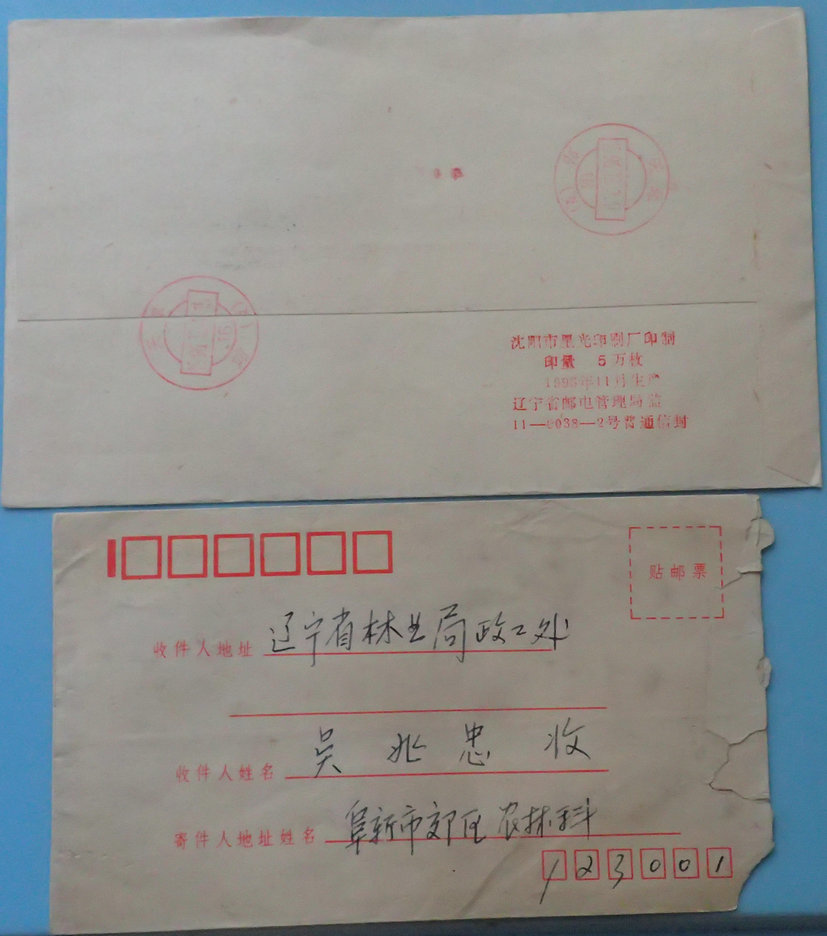 沈阳市星光印刷厂印制
印量 5万枚
11月生产
辽宁省邮电管理局监
11—0038—2号普通信封
贴邮票
收件人地址 辽宁省林业局政工处
收件人姓名 吴兆忠 收
寄件人地址姓名 阜新市郊区农林科
123001